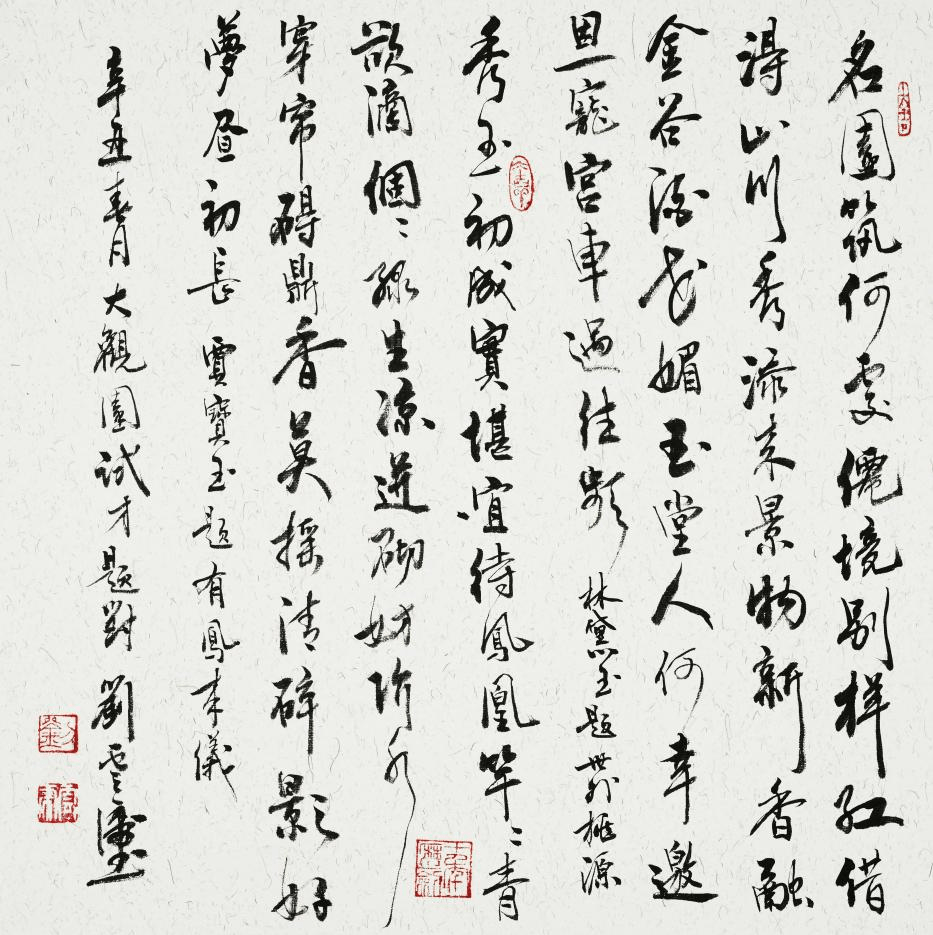 名園筑何處僊境别样红借
得山川秀添来景物新香融
金谷酒花媚玉堂人何幸邀
恩寵宫車過往频 林黛玉题世外桃源
秀玉初成實堪宜待鳳凰竿〻青
欲滴個〻绿生凉迸砌妨阶水
穿帘碍鼎香莫摇清碎影好
夢昼初長 賈寶玉题有鳳来儀
辛丑春月大觀園試才题對 劉雲